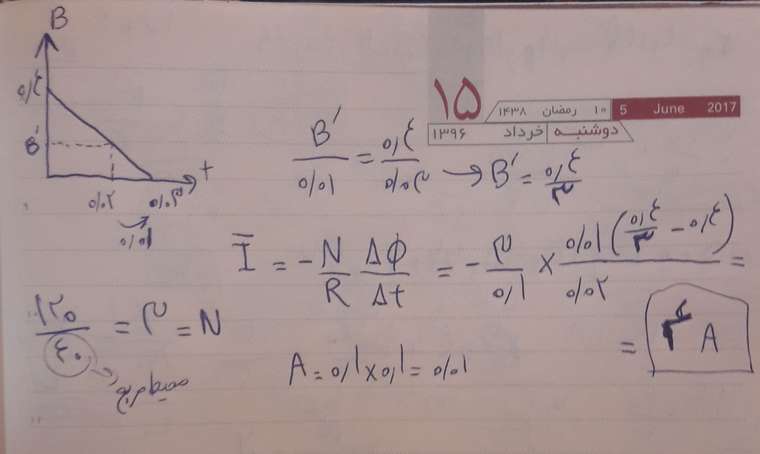 B
۰/٤
B'
۰/۰۲ ۰/۰۳ t
۰/۰۱
۱۵
۱۰ رمضان ۱۴۳۸ 5 June 2017
دوشنبه خرداد ۱۳۹۶
B'/۰/۰۱ = ۰/٤/۰/۰۳ → B' = ۰/٤/۳
Ī = - N/R ΔΦ/Δt = - ۳/۰/۱ × ۰/۰۱(۰/٤/۳ - ۰/٤)/۰/۰۲ =
= ۴ A
۱۲۰/٤۰ = ۳ = N
محیط مربع
A = ۰/۱ × ۰/۱ = ۰/۰۱